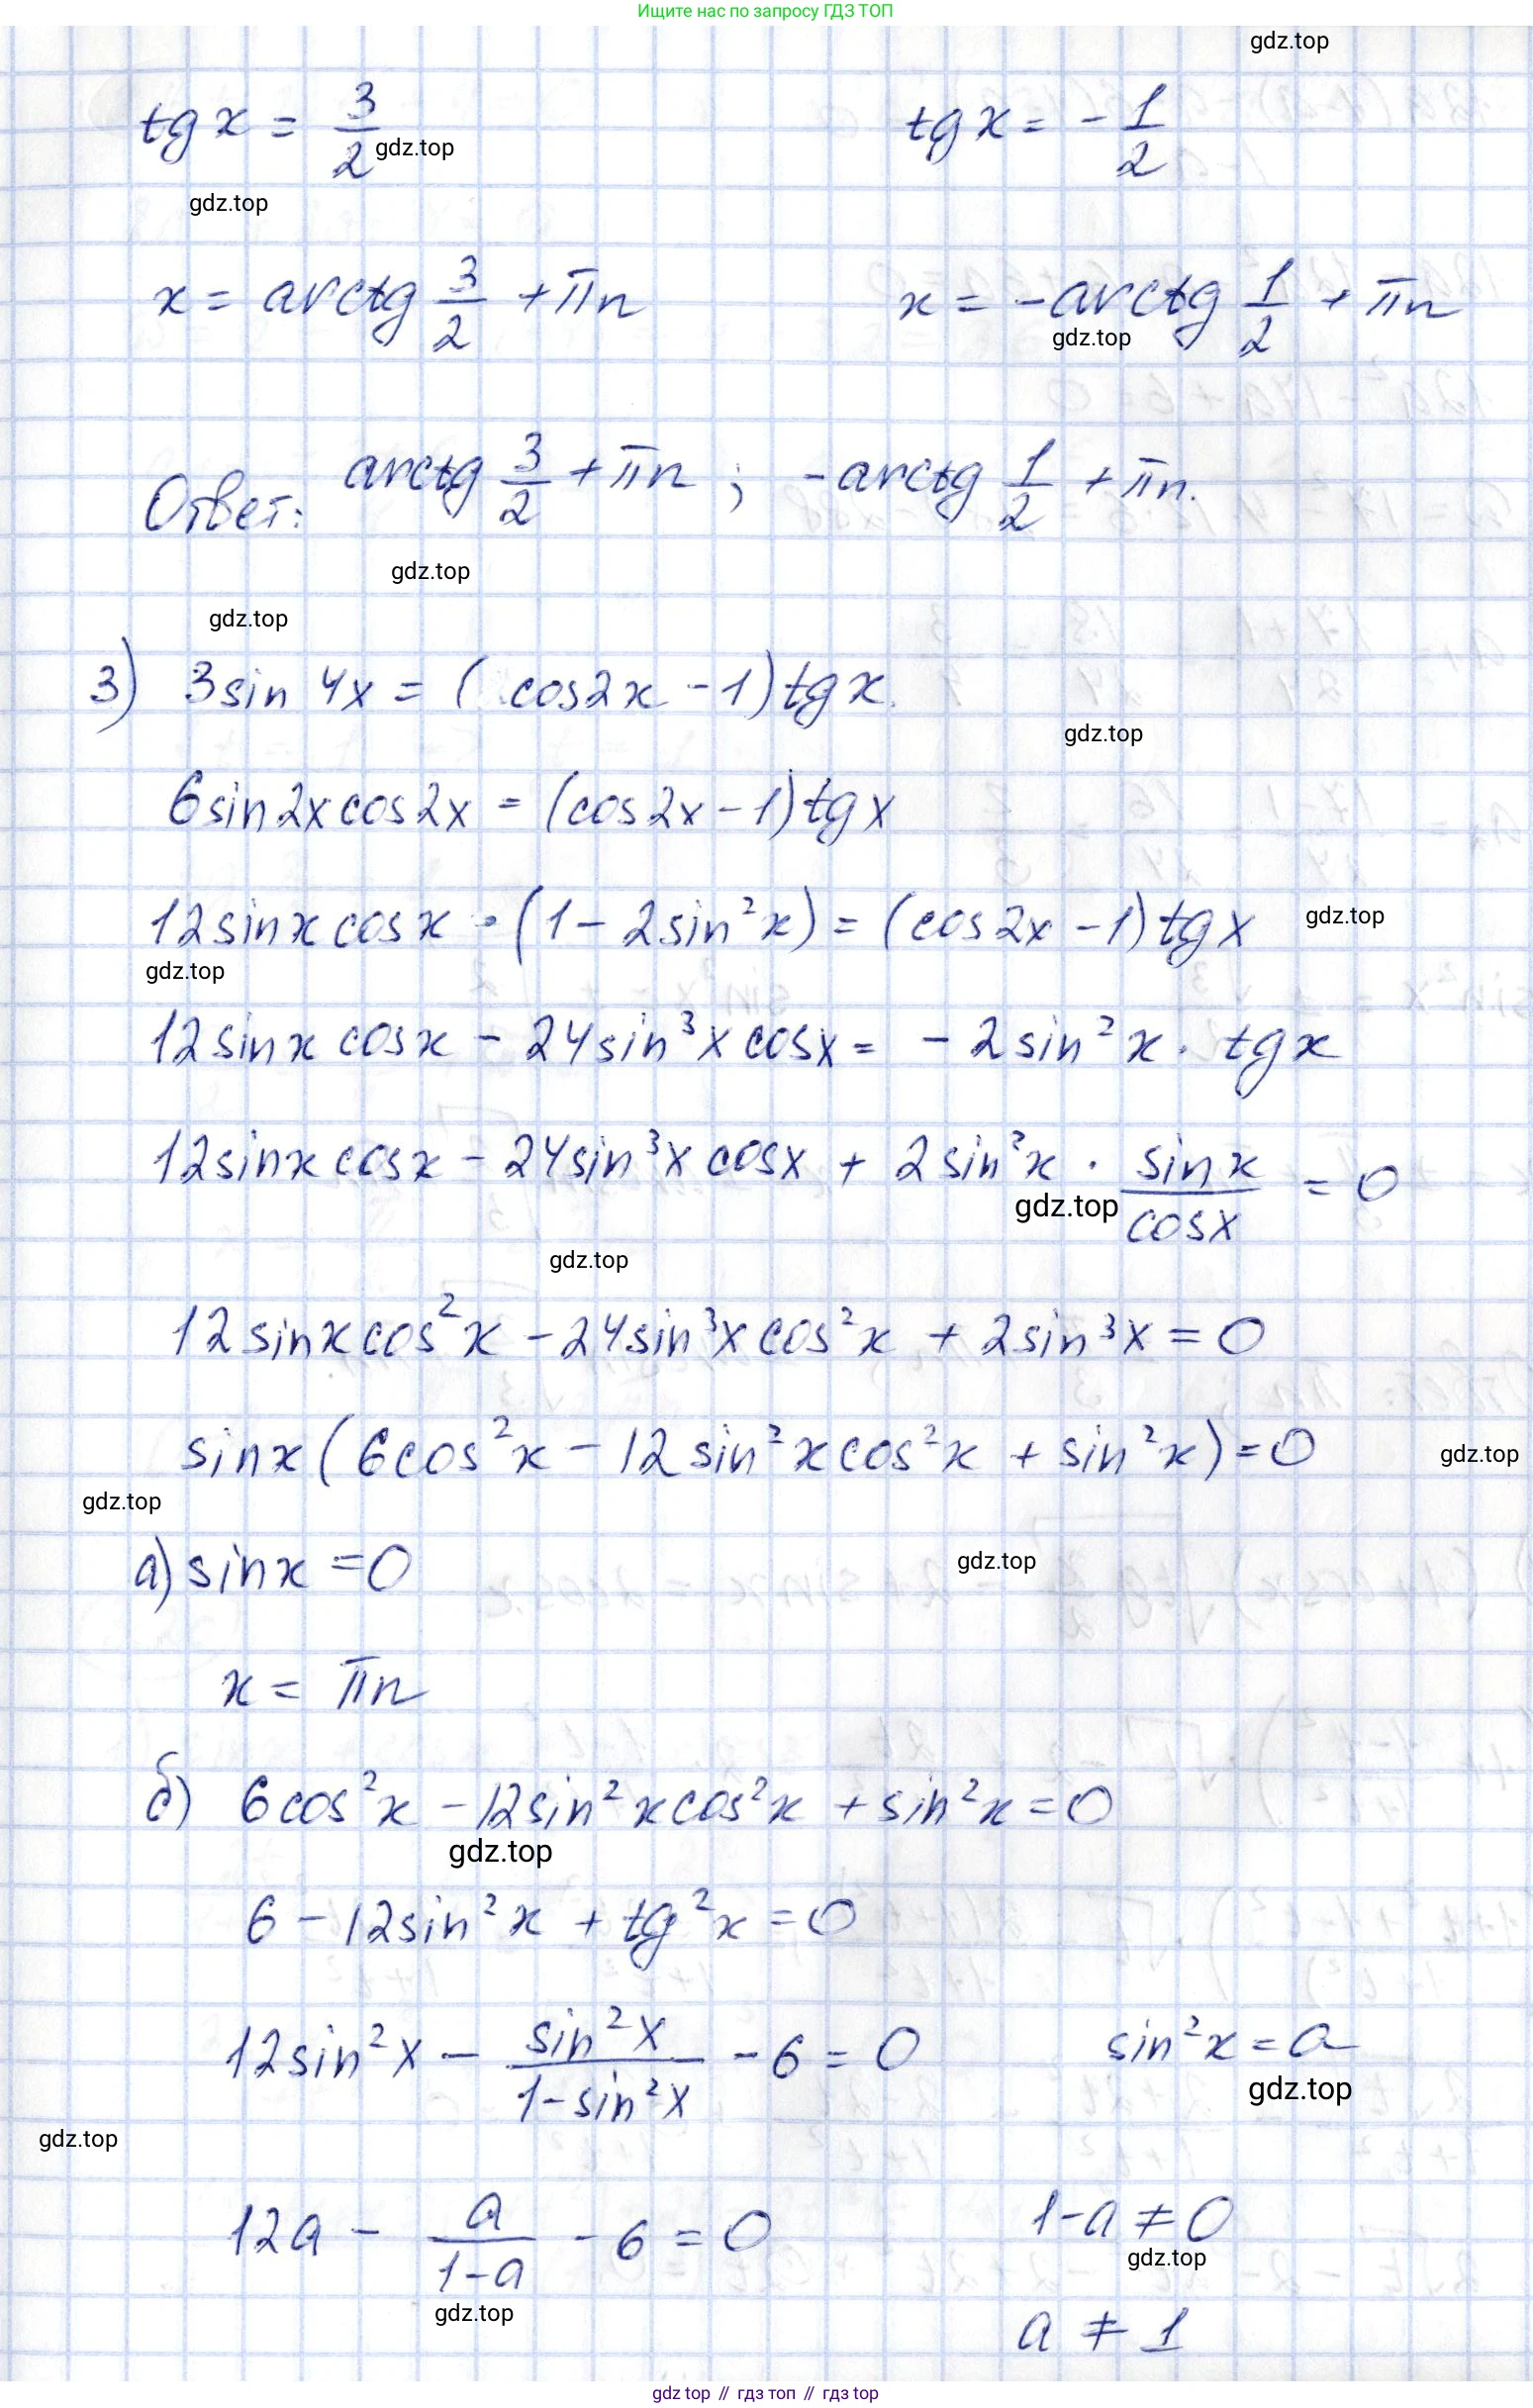 Ищите нас по запросу ГДЗ ТОП
gdz.top
tg x = 3/2 tg x = - 1/2
gdz.top
gdz.top
x = arctg 3/2 + πn x = -arctg 1/2 + πn
gdz.top
Ответ: arctg 3/2 + πn ; -arctg 1/2 + πn.
gdz.top
gdz.top
3) 3sin 4x = (cos2x - 1)tg x.
gdz.top
6sin2x cos2x = (cos2x - 1)tg x
12sinx cosx · (1 - 2sin²x) = (cos2x - 1)tg x
gdz.top
gdz.top
12sinx cosx - 24sin³x cosx = - 2sin²x · tg x
12sinx cosx - 24sin³x cosx + 2sin²x · sinx/cosx = 0
gdz.top
gdz.top
12sinx cos²x - 24sin³x cos²x + 2sin³x = 0
sinx(6cos²x - 12sin²x cos²x + sin²x) = 0
gdz.top
gdz.top
а) sinx = 0
gdz.top
x = πn
б) 6cos²x - 12sin²x cos²x + sin²x = 0
gdz.top
6 - 12sin²x + tg²x = 0
12sin²x - sin²x/(1-sin²x) - 6 = 0 sin²x = a
gdz.top
gdz.top
12a - a/(1-a) - 6 = 0 1-a ≠ 0
gdz.top
gdz.top
a ≠ 1
gdz top // гдз топ // gdz top